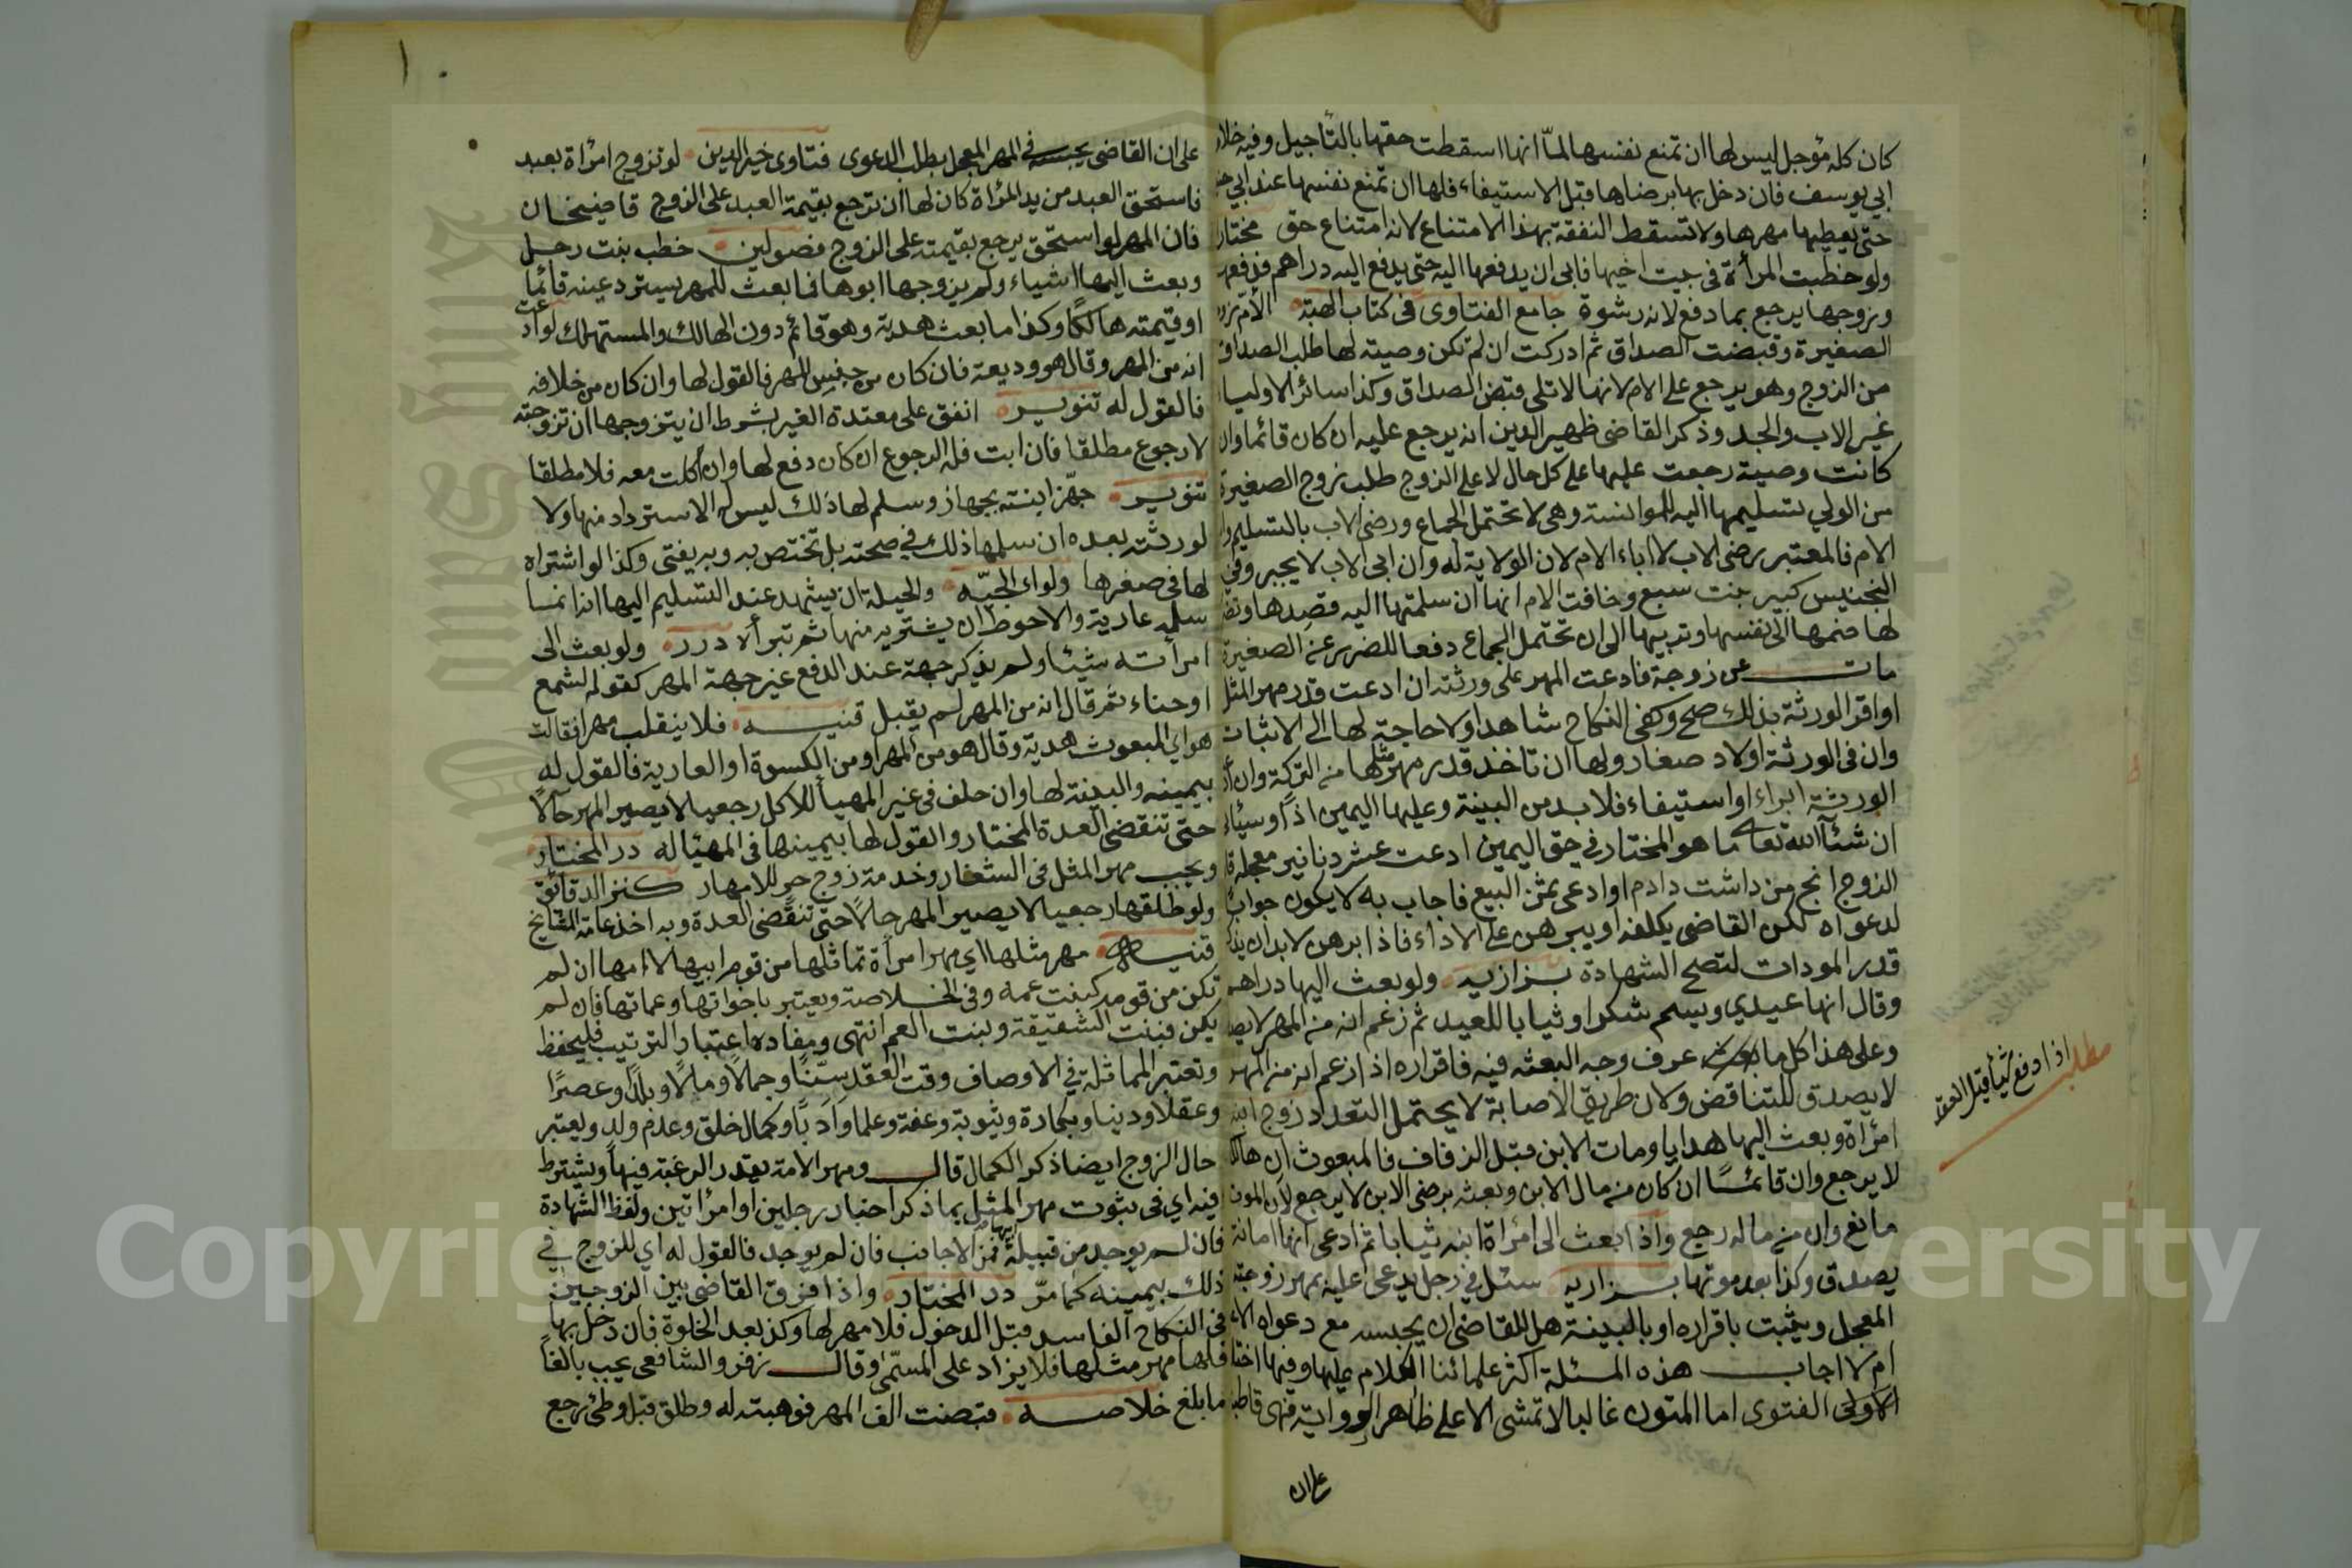 كان كله مؤجل ليس لها ان تمنع نفسها لما انها اسقطت حقها بالتأجيل وفيه خلاف
ابي يوسف فان دخل بها برضاها قبل الاستيفاء فلها ان تمنع نفسها عند ابي
حتى يعطيها مهرها ولا تسقط النفقة بهذا الامتناع لانه امتناع حق مختار
ولو خطبت المرأة في بيت اخيها فابى ان يدفعها اليه حتى يدفع اليه دراهم فدفعها
وتزوجها يرجع بما دفع لانه رشوة جامع الفتاوى في كتاب الهبة الام تزوج
الصغيرة وقبضت الصداق ثم ادركت ان لم تكن وصيته لها طلب الصداق
من الزوج وهو يرجع على الام لانها لا تلي قبض الصداق وكذا سائر الاولياء
غير الاب والجد وذكر القاضى ظهير الدين انه يرجع عليه ان كان قائما وان
كانت وصية رجعت عليها على كل حال لا على الزوج طلب زوج الصغيرة
من الولي تسليمها اليه للموانسة وهي لا تحتمل الجماع ورضى الاب بالتسليم
الام فالمعتبر رضى الاب لا اباء الام لان الولاية له وان ابى الاب لا يجبر وفي
التجنيس كبير بنت سبع وخافت الام انها ان سلمتها اليه قصدها
لها ضمها الى نفسها وتربيها الى ان تحتمل الجماع دفعا للضرر عن الصغيرة
مات عن زوجة فادعت المهر على ورثته ان ادعت قدر مهر المثل
او اقر الورثة بذلك صح وكفى النكاح شاهدا ولا حاجة لها الى الاثبات
وان في الورثة اولاد صغار ولها ان تاخذ قدر مهر مثلها من التركة وان
الورثة ابراء او استيفاء فلا بد من البينة وعليها اليمين
ان شاء الله تعالى ما هو المختار في حق اليمين ادعت عشر دنانير معجلة
الزوج انج من داشت دادم او ادعى ثمن البيع فاجاب به لا يكون جوابا
لدعواه لكن القاضي يكلفه او يبرهن على الاداء فاذا برهن لا بد ان يذكر
قدر المودات لتصح الشهادة بزازيه ولو بعث اليها دراهم
وقال انها عيدي وسيم شكر او ثيابا للعيد ثم زعم انه من المهر لا
وعلى هذا كل ما بعث عرف وجه البعثه فيه فاقراره اذا زعم انه من المهر
لا يصدق للتناقض ولان طريق الاصابة لا يحتمل التعدد زوج ابنه
امرأة وبعث اليها هدايا ومات الابن قبل الزفاف فالمبعوث ان هالكا
لا يرجع وان قائما ان كان من مال الابن وبعثه برضى الابن لا يرجع لان الموت
مانع وان من ماله رجع واذا بعث الى امرأة ابنه ثيابا ثم ادعى انها امانة
يصدق وكذا بعد موتها بزازيه سئل في رجل يدعى عليه بمهر زوجته
المعجل ويثبت باقراره او بالبينة هل للقاضى ان يحبسه مع دعواه
ام لا اجاب هذه المسئلة اكثر علمائنا الكلام عليها وفيها
الاولى الفتوى اما المتون غالبا لا تمشى الا على ظاهر الرواية فهى قاطبة
على ان
مطلب اذا دفع شيأ قبل العقد
على ان القاضى يحبسه في المهر المعجل بطلب الدعوى فتاوى خير الدين لو تزوج امرأة بعبد
فاستحق العبد من يد المرأة كان لها ان ترجع بقيمة العبد على الزوج قاضيخان
فان المهر لو استحق يرجع بقيمته على الزوج فصولين خطب بنت رجل
وبعث اليها اشياء ولم يزوجها ابوها فما بعث للمهر يسترد عينه قائما
او قيمته هالكا وكذا ما بعث هدية وهو قائم دون الهالك والمستهلك لو ادعت
انه من المهر وقال هو وديعة فان كان من جنس المهر فالقول لها وان كان من خلافه
فالقول له تنوير انفق على معتدة الغير بشرط ان يتزوجها ان تزوجته
لا رجوع مطلقا فان ابت فله الرجوع ان كان دفع لها وان اكلت معه فلا مطلقا
تنوير جهز ابنته بجهاز وسلم لها ذلك ليس له الاسترداد منها ولا
لورثته بعده ان سلمها ذلك في صحته بل تختص به وبه يفتى وكذا لو اشتراه
لها في صغرها ولو الجيه والحيلة ان يشهد عند التسليم اليها انه انما
سلمه عارية والاحوط ان يشتريه منها ثم تبرأه درر ولو بعث الى
امرأته شيئا ولم يذكر جهة عند الدفع غير جهة المهر كقوله لشمع
او حناء ثم قال انه من المهر لم يقبل قنيه فلا ينقلب مهرا فقالت
هو اي المبعوث هدية وقال هو من المهر او من الكسوة او العارية فالقول له
بيمينه والبينة لها وان حلف في غير المهيأ للاكل رجعيا لا يصير المهر حالا
حتى تنقضى العدة المختار والقول لها بيمينها في المهيا له در المختار
ويجب مهر المثل في الشغار وخدمة زوج حر للامهار كنز الدقائق
ولو طلقها رجعيا لا يصير المهر حالا حتى تنقضى العدة وبه اخذ عامة المشايخ
قنيه مهر مثلها اي مهر امرأة تماثلها من قوم ابيها لا امها ان لم
تكن من قومه كبنت عمه وفي الخلاصة ويعتبر باخواتها وعماتها فان لم
يكن فبنت الشقيقة وبنت العم انتهى ومفاده اعتبار الترتيب فليحفظ
وتعتبر المماثلة في الاوصاف وقت العقد سنا وجمالا ومالا وبلدا وعصرا
وعقلا ودينا وبكارة وثيوبة وعفة وعلما وادبا وكمال خلق وعدم ولد ويعتبر
حال الزوج ايضا ذكره الكمال قال ومهر الامة بقدر الرغبة فيها ويشترط
فيه اي في ثبوت مهر المثل بما ذكر اخبار رجلين او امرأتين ولفظ الشهادة
فان لم يوجد من قبيلة ابيها فمن الاجانب فان لم يوجد فالقول له اي للزوج في
ذلك بيمينه كما مر در المختار واذا فرق القاضي بين الزوجين
في النكاح الفاسد قبل الدخول فلا مهر لها وكذا بعد الخلوة فان دخل بها
فلها مهر مثلها فلا يزاد على المسمى وقال زفر والشافعى يجب بالغا
ما بلغ خلاصه قبضت الف المهر فوهبته له وطلق قبل وطئ رجع